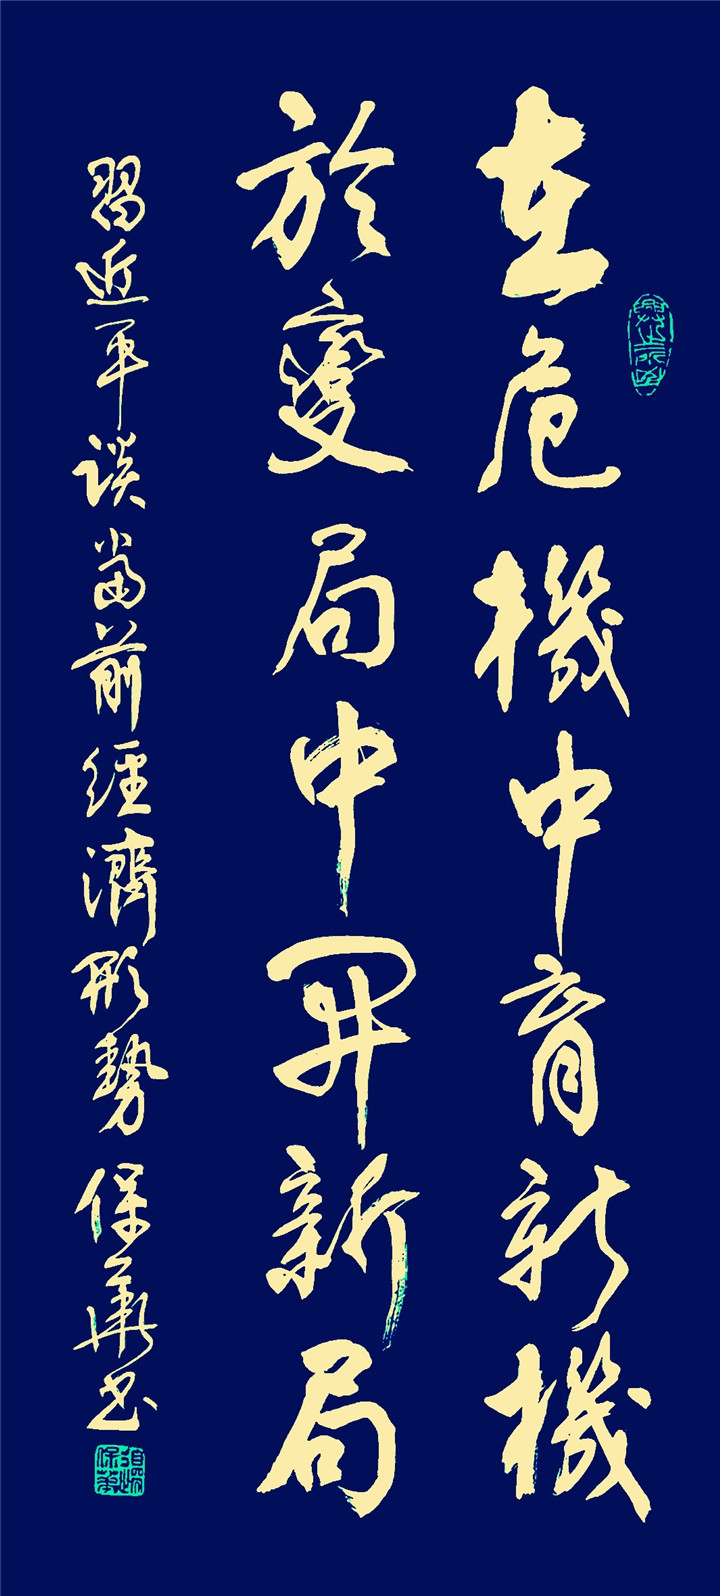 在危機中育新機
於變局中開新局
習近平談當前經濟形勢 保華书